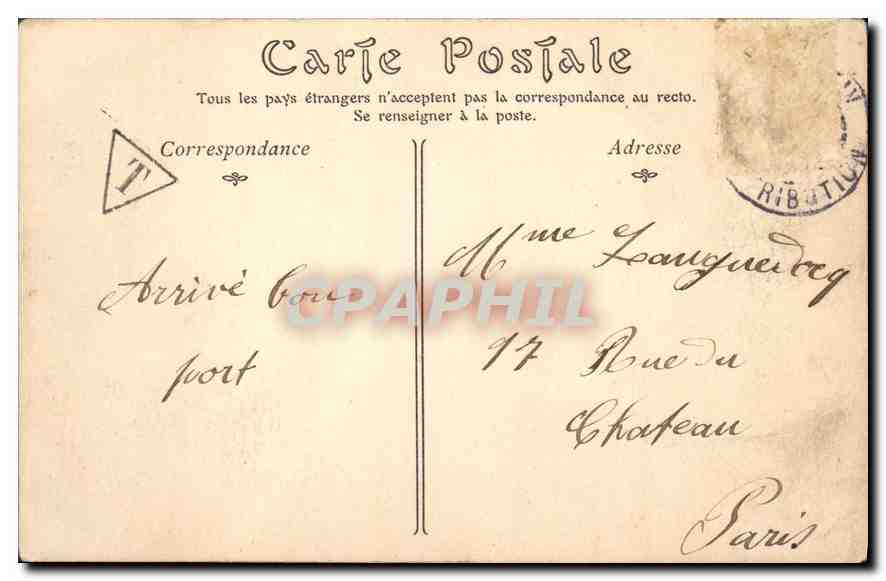 Carte Postale
Tous les pays étrangers n'acceptent pas la correspondance au recto.
Se renseigner à la poste.
T
Correspondance
Adresse
RIBUTION
Arrivé bon
port
CPAPHIL
Mme
97 Rue du
Chateau
Paris